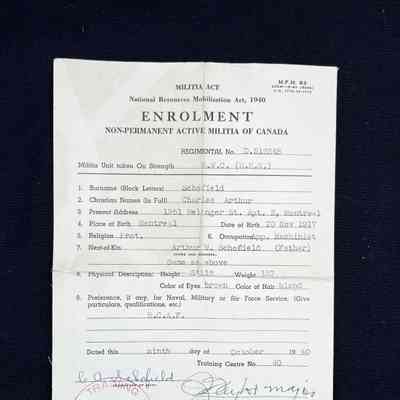 MILITIA ACT
National Resources Mobilization Act, 1940
ENROLMENT
NON-PERMANENT ACTIVE MILITIA OF CANADA
REGIMENTAL No.
Militia Unit taken On Strength
1. Surname (Block Letters) Schofield
2. Christian Names (in Full) Charles Arthur
3. Present Address 1961 St. Apt. Montreal
4. Place of Birth Montreal Date of Birth 20 Nov 1917
5. Religion Prot. 6. Occupation App. Machinist
7. Next-of-Kin Arthur Schofield (Father)
Same as above
8. Physical Description: Height Weight
Color of Eyes brown Color of Hair blond
9. Preference, if any, for Naval, Military or Air Force Service. (Give
particulars, qualifications, etc.)
R.C.A.F.
Dated this ninth day of October 19 40
Training Centre No. 40
Schofield Major
TRAINING